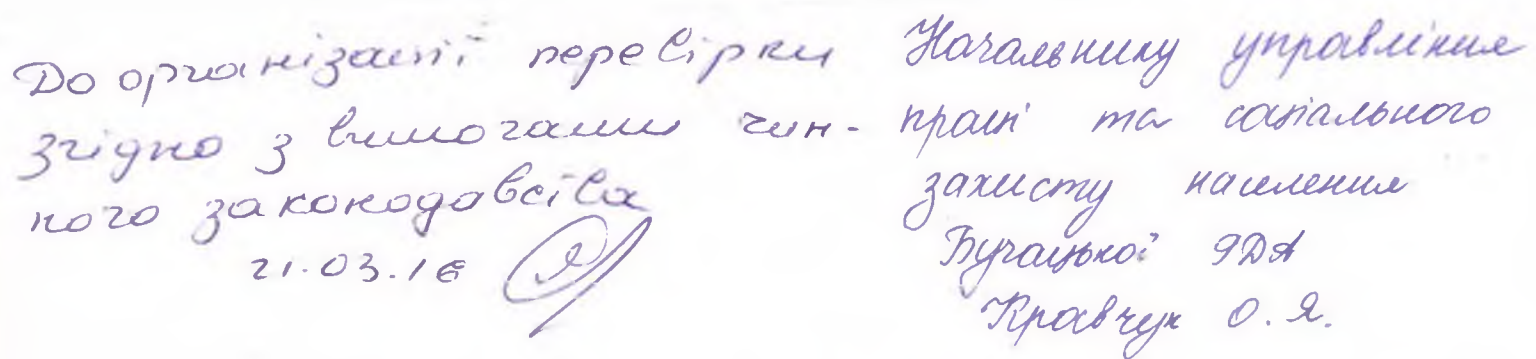 До організації перевірки
згідно з вимогами чин-
ного законодавства
21.03.16
Начальнику управління
праці та соціального
захисту населення
Бучацької РДА
Кравчук О. Я.